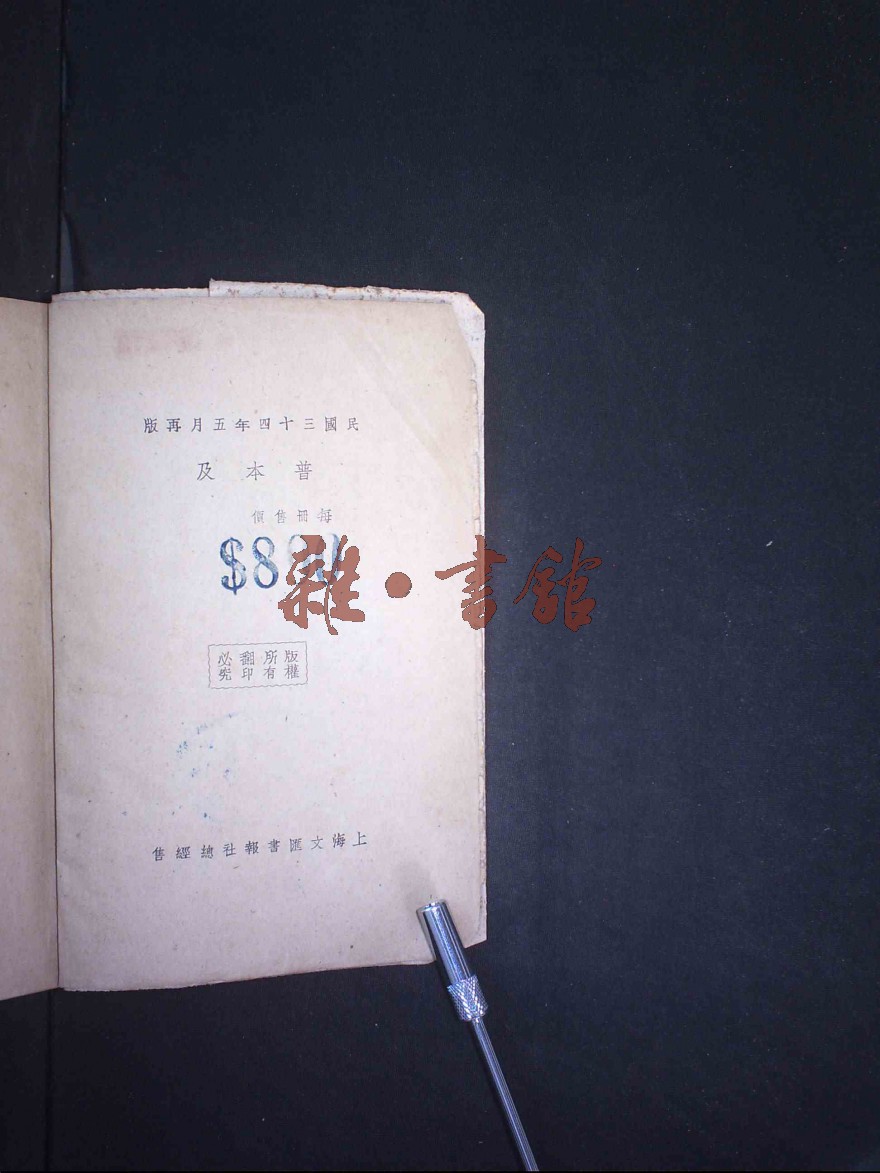 民國三十四年五月再版
普本及
每冊售價
$8
版權所有
翻印必究
上海文匯書報社總經售
雜•書館